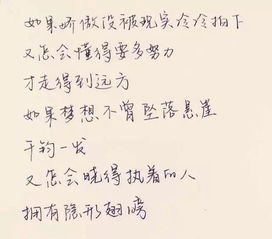 如果骄傲没被现实冷冷拍下
又怎会懂得要多努力
才走得到远方
如果梦想不曾坠落悬崖
千钧一发
又怎会晓得执着的人
拥有隐形翅膀